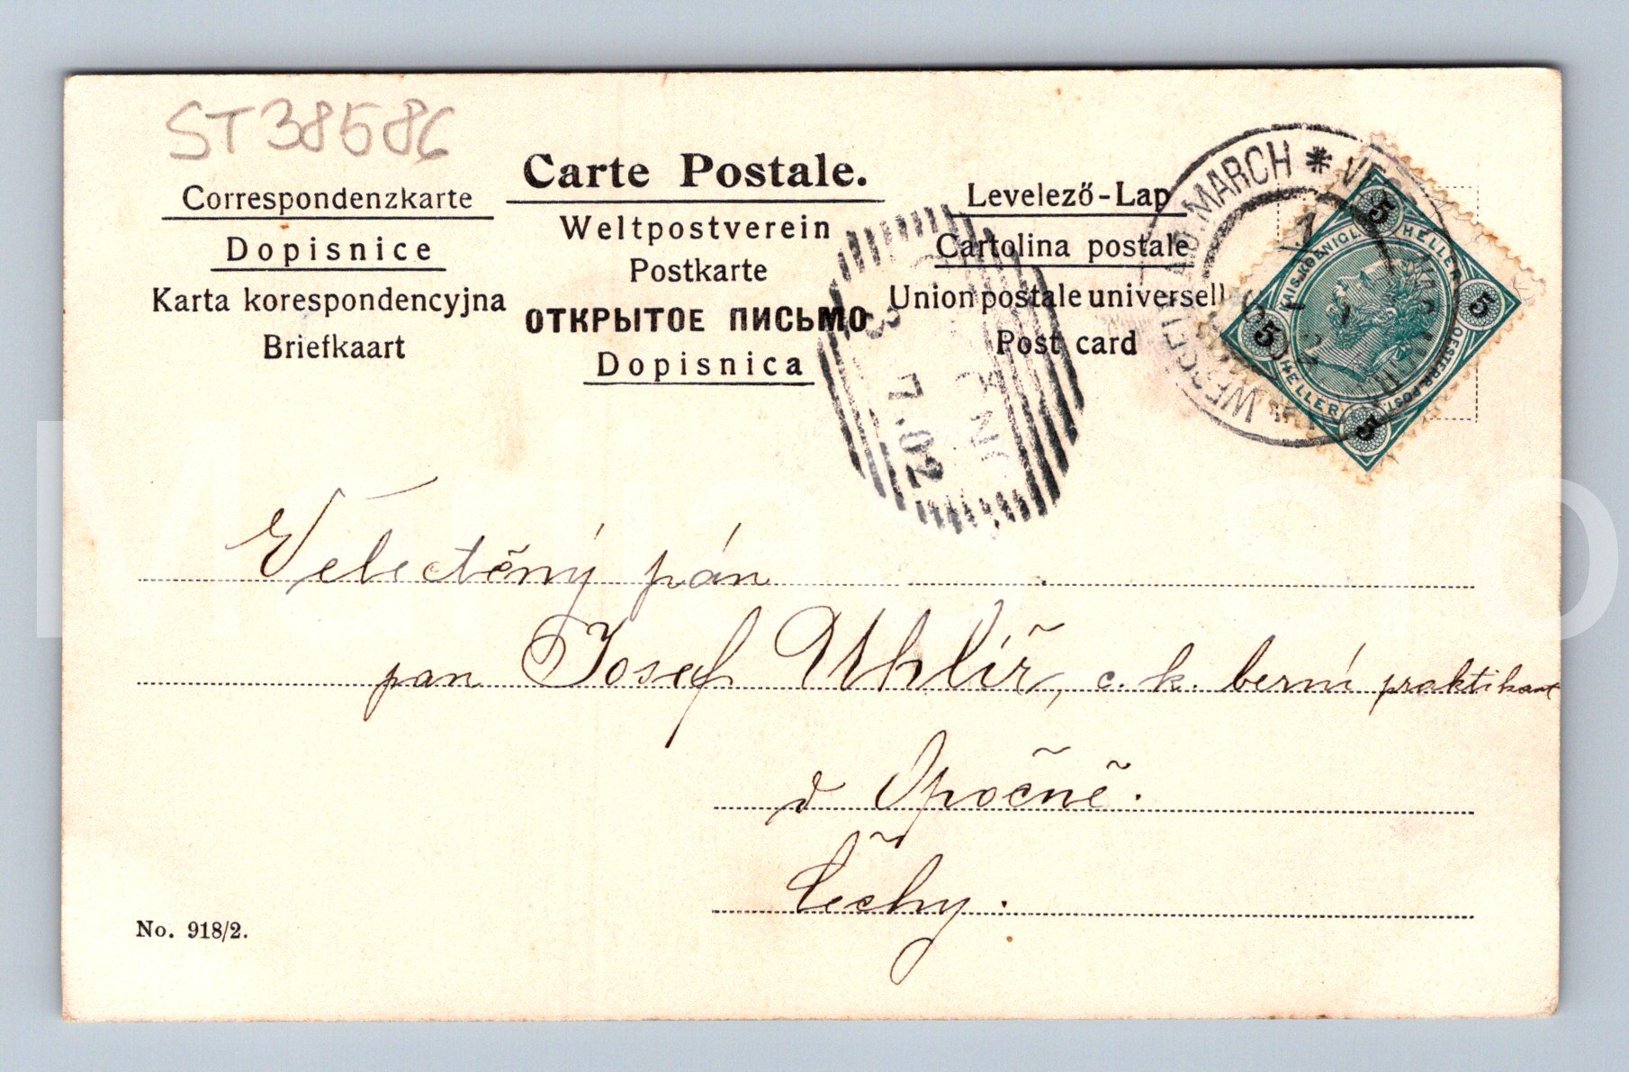 ST38586
Carte Postale.
Correspondenzkarte
Dopisnice
Karta korespondencyjna
Briefkaart
Weltpostverein
Postkarte
ОТКРЫТОЕ ПИСЬМО
Dopisnica
Levelező-Lap
Cartolina postale
Union postale universelle
Post card
A.D. MARCH * 
5 HELLER 5
KAIS. KOENIGL.
OESTERR. POST
5 HELLER 5
7.02
Velectěný pán
pan Josef Uhlíř, c. k. berní praktikant
v Opočně.
Čechy.
No. 918/2.